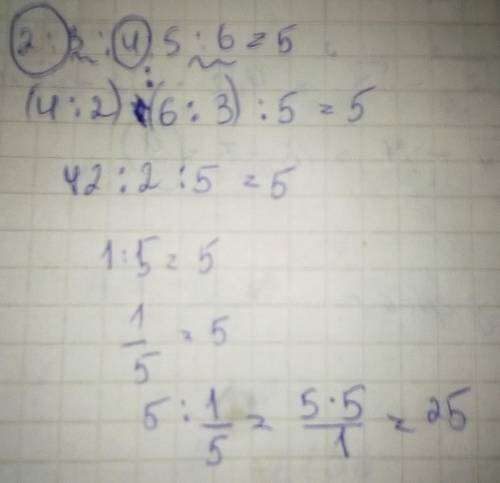 2 : 3 : 4 : 5 : 6 = 5
(4 : 2) : (6 : 3) : 5 = 5
2 : 2 : 5 = 5
1 : 5 = 5
1/5 = 5
5 : 1/5 = 5·5/1 = 25